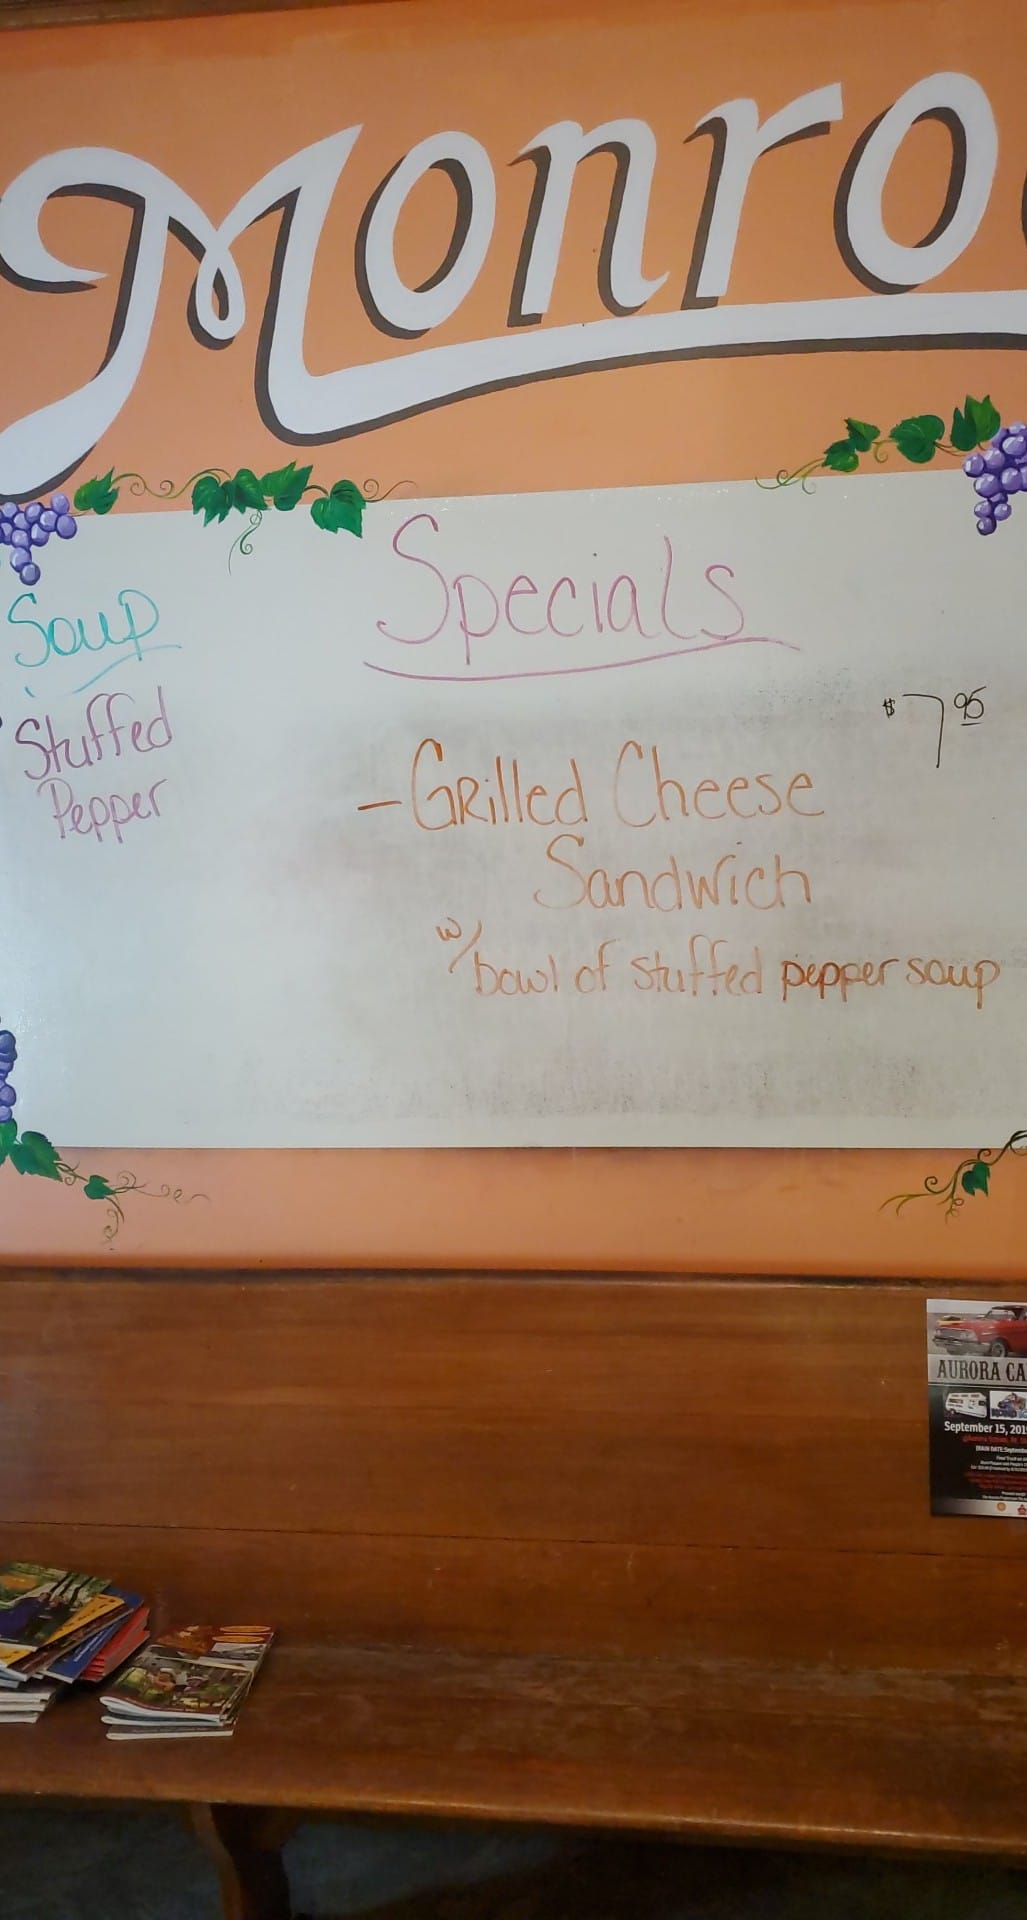 Monro
Soup
Stuffed
Pepper
Specials
$7.95
- Grilled Cheese
Sandwich
w/ bowl of stuffed pepper soup
AURORA CA
September 15, 201